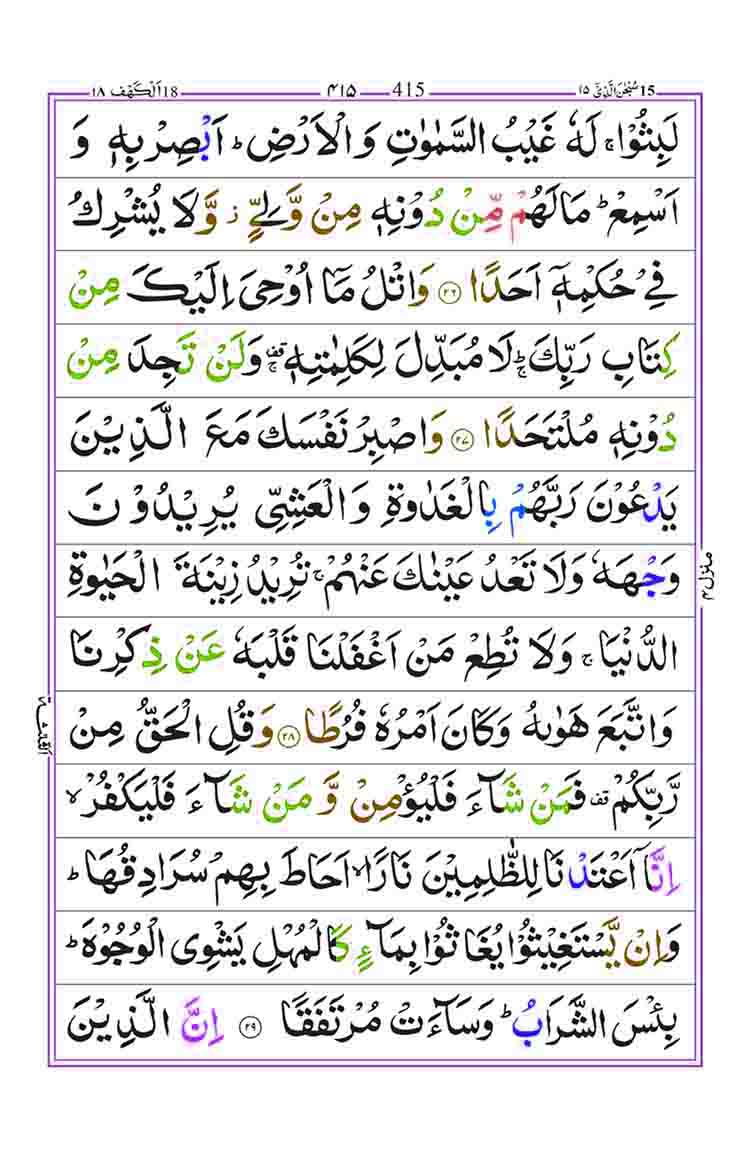 15 سُبْحٰنَ الَّذِیْٓ ۱۵ 415 ۴۱۵ 18 اَلْکَهْف ۱۸
لَبِثُوْا ۚ لَهٗ غَیْبُ السَّمٰوٰتِ وَ الْاَرْضِ ؕ اَبْصِرْ بِهٖ وَ
اَسْمِعْ ؕ مَا لَهُمْ مِّنْ دُوْنِهٖ مِنْ وَّلِیٍّ ؗ وَّ لَا یُشْرِكُ
فِیْ حُكْمِهٖۤ اَحَدًا ۲۶ وَ اتْلُ مَاۤ اُوْحِیَ اِلَیْكَ مِنْ
كِتَابِ رَبِّكَ ؕۚ لَا مُبَدِّلَ لِكَلِمٰتِهٖ ۚ۫ وَ لَنْ تَجِدَ مِنْ
دُوْنِهٖ مُلْتَحَدًا ۲۷ وَ اصْبِرْ نَفْسَكَ مَعَ الَّذِیْنَ
یَدْعُوْنَ رَبَّهُمْ بِالْغَدٰوةِ وَ الْعَشِیِّ یُرِیْدُوْنَ
وَجْهَهٗ وَ لَا تَعْدُ عَیْنٰكَ عَنْهُمْ ۚ تُرِیْدُ زِیْنَةَ الْحَیٰوةِ
الدُّنْیَا ۚ وَ لَا تُطِعْ مَنْ اَغْفَلْنَا قَلْبَهٗ عَنْ ذِكْرِنَا
وَ اتَّبَعَ هَوٰىهُ وَ كَانَ اَمْرُهٗ فُرُطًا ۲۸ وَ قُلِ الْحَقُّ مِنْ
رَّبِّكُمْ ۫ فَمَنْ شَآءَ فَلْیُؤْمِنْ وَّ مَنْ شَآءَ فَلْیَكْفُرْ ۙ
اِنَّاۤ اَعْتَدْنَا لِلظّٰلِمِیْنَ نَارًا ۙ اَحَاطَ بِهِمْ سُرَادِقُهَا ؕ
وَ اِنْ یَّسْتَغِیْثُوْا یُغَاثُوْا بِمَآءٍ كَالْمُهْلِ یَشْوِی الْوُجُوْهَ ؕ
بِئْسَ الشَّرَابُ ؕ وَ سَآءَتْ مُرْتَفَقًا ۲۹ اِنَّ الَّذِیْنَ
منزل ۴
الثلٰثة